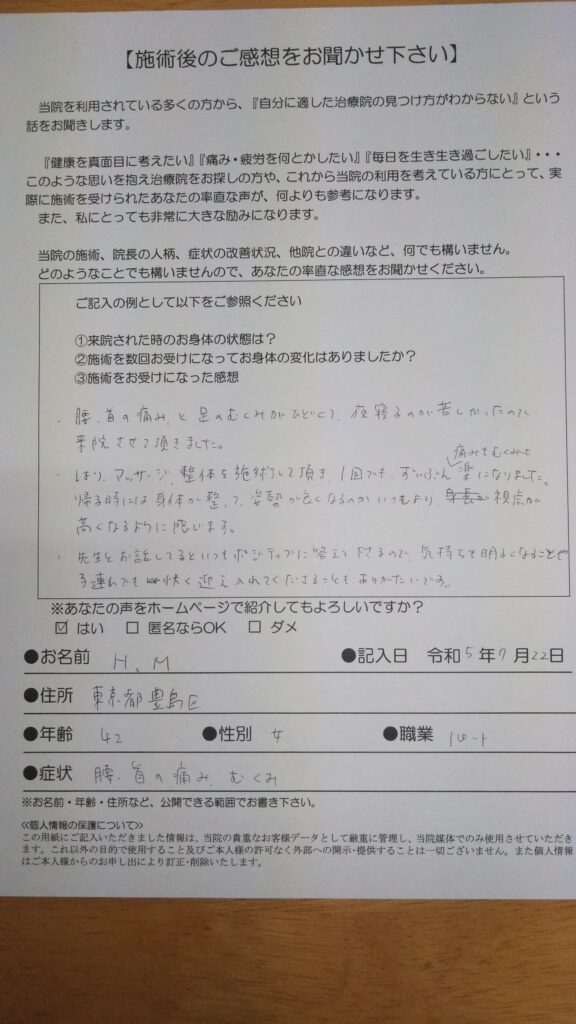 【施術後のご感想をお聞かせ下さい】
当院を利用されている多くの方から、『自分に適した治療院の見つけ方がわからない』という
話をお聞きします。
『健康を真面目に考えたい』『痛み・疲労を何とかしたい』『毎日を生き生き過ごしたい』・・・
このような思いを抱え治療院をお探しの方や、これから当院の利用を考えている方にとって、実
際に施術を受けられたあなたの率直な声が、何よりも参考になります。
また、私にとっても非常に大きな励みになります。
当院の施術、院長の人柄、症状の改善状況、他院との違いなど、何でも構いません。
どのようなことでも構いませんので、あなたの率直な感想をお聞かせください。
ご記入の例として以下をご参照ください
①来院された時のお身体の状態は？
②施術を数回お受けになってお身体の変化はありましたか？
③施術をお受けになった感想
・腰、首の痛みと足のむくみがひどくて、夜寝るのが苦しかったので
来院させて頂きました。
痛みもむくみも
・はり、マッサージ、整体を施術して頂き、1回でも、ずいぶん楽になりました。
帰る時には身体が整って、姿勢が良くなるのかいつもより視点が
高くなるように感じます。
・先生とお話してるといつもポジティブに答えて下さるので、気持ちも明るくなることや
子連れでも快く迎え入れてくださることもありがたいです。
※あなたの声をホームページで紹介してもよろしいですか？
☑ はい □ 匿名ならOK □ ダメ
●お名前 H.M ●記入日 令和5年7月22日
●住所 東京都豊島区
●年齢 42 ●性別 女 ●職業 パート
●症状 腰、首の痛み、むくみ
※お名前・年齢・住所など、公開できる範囲でお書き下さい。
≪個人情報の保護について≫
この用紙にご記入いただきました情報は、当院の貴重なお客様データとして厳重に管理し、当院媒体でのみ使用させていただき
ます。これ以外の目的で使用すること及びご本人様の許可なく外部への開示・提供することは一切ございません。また個人情報
はご本人様からのお申し出により訂正・削除いたします。